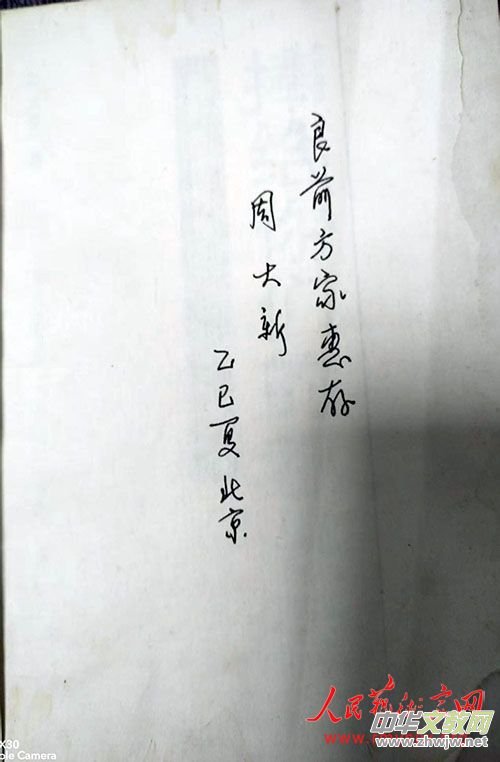 良前方家惠存
周大新
乙巳夏北京
人民艺术家网
中华文教网
www.zhwjw.net
X30
ole Camera